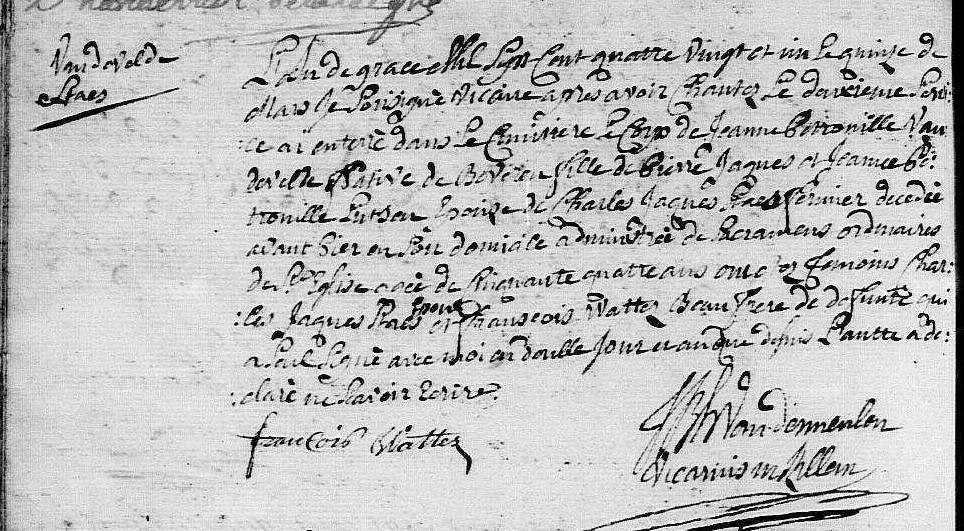 Vandevelde
Staes
L'an de grace Mil Sept Cent quattre vingt et un Le quinze de
Mars Je Sousigné Vicaire apres avoir Chantez Le deuxieme Servi:
ce ai enterré dans Le Cimitiere Le Corp de Jeanne Petronille Van
develde Native de fille de Pierre Jaques et Jeanne Pe:
tronille Epouse de Charles Jaques Staes fermier decedée
avant hier en Son domicile administrée de Sacramens ordinaires
de Ste Eglise agée de Cinquante quattre ans temoins Char:
:les Jaques Staes Epoux et Franseois Wattez Beau frere de defunte qui
a Seul Signé avec moi en double Jour et an que dessus L'autre a de:
:claré ne Savoir Ecrire.
francois Wattez
Vandermeulen
Vicarius in Killem